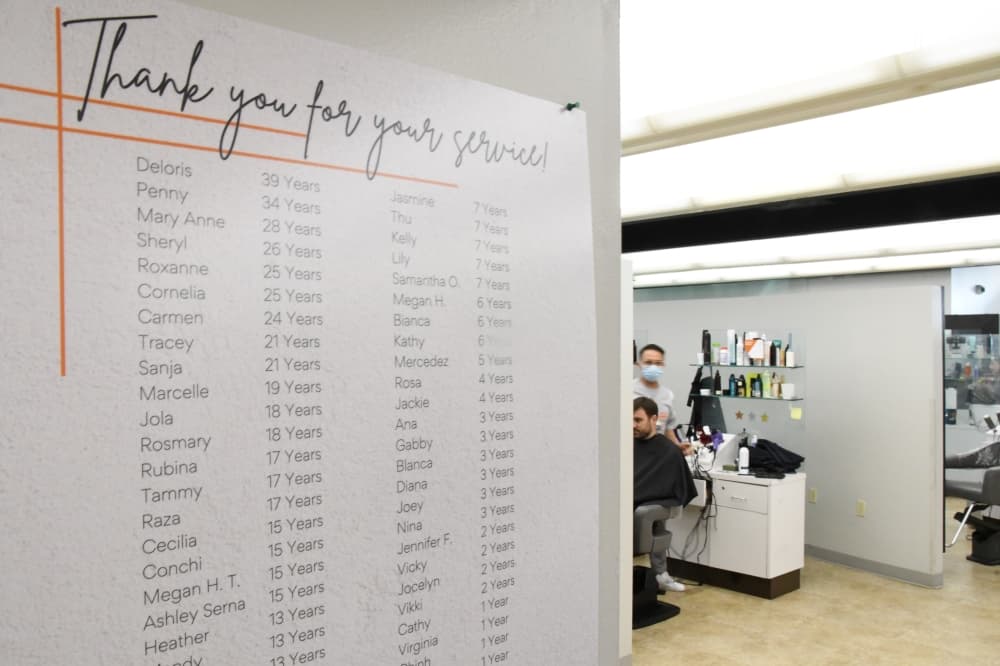 Thank you for your service!
Deloris 39 Years
Penny 34 Years
Mary Anne 28 Years
Sheryl 26 Years
Roxanne 25 Years
Cornelia 25 Years
Carmen 24 Years
Tracey 21 Years
Sanja 21 Years
Marcelle 19 Years
Jola 18 Years
Rosmary 18 Years
Rubina 17 Years
Tammy 17 Years
Raza 17 Years
Cecilia 15 Years
Conchi 15 Years
Megan H. T. 15 Years
Ashley Serna 15 Years
Heather 13 Years
13 Years
13 Years
Jasmine 7 Years
Thu 7 Years
Kelly 7 Years
Lily 7 Years
Samantha O. 7 Years
Megan H. 6 Years
Bianca 6 Years
Kathy 6 Years
Mercedez 5 Years
Rosa 4 Years
Jackie 4 Years
Ana 3 Years
Gabby 3 Years
Blanca 3 Years
Diana 3 Years
Joey 3 Years
Nina 2 Years
Jennifer F. 2 Years
Vicky 2 Years
Jocelyn 2 Years
Vikki 1 Year
Cathy 1 Year
Virginia 1 Year
1 Year